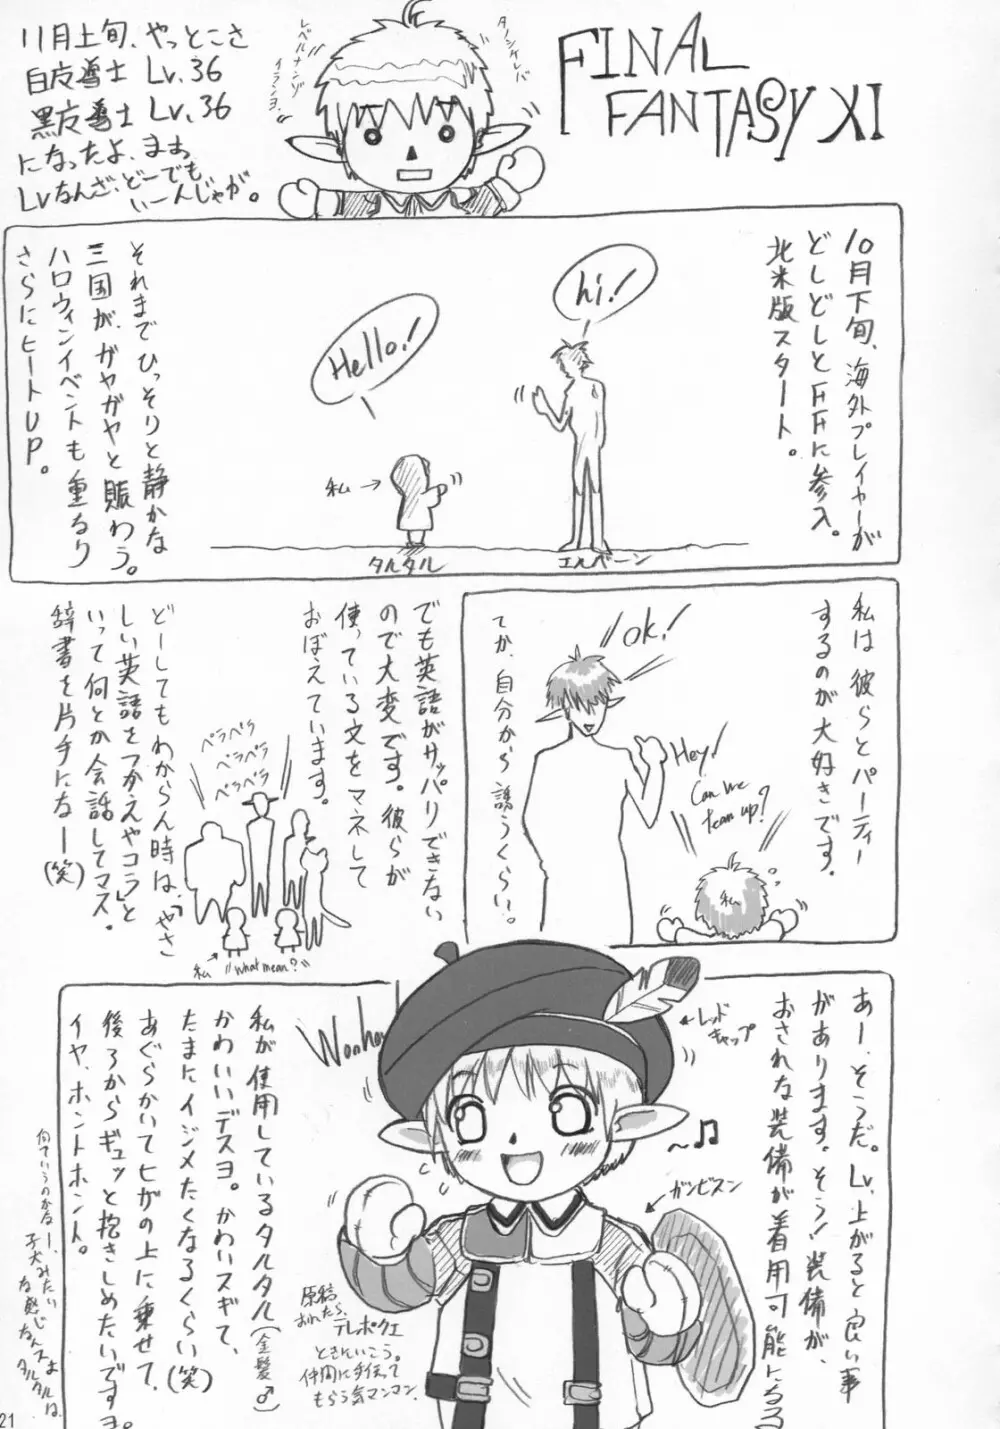 FINAL
FANTASY XI
11月上旬、やっとこさ
白魔導士 Lv.36
黒魔導士 Lv.36
になったよ、まぁ
Lvなんざ、どーでも
いーんじゃが。
タノシケレバ
レベルナンゾ
イランヨ。
10月下旬、海外プレイヤーが
どしどしとFFに参入。
北米版スタート。
hi!
Hello!
私→
タルタル
エルバーン
それまでひっそりと静かな
三国が、ガヤガヤと賑わう。
ハロウィンイベントも重なり
さらにヒートUP。
私は彼らとパーティー
するのが大好きです。
ok!
Hey!
Can we
team up?
私
てか、自分から誘うくらい。
でも英語がサッパリできない
ので大変です。彼らが
使っている文をマネして
おぼえています。
どーしてもわからん時は、「やさ
しい英語をつかえやコラ」と
いって何とか会話してマス。
辞書を片手になー(笑)
ペラペラ
ペラペラ
ペラペラ
私
"what mean?"
あー、そうだ。Lv.上がると良い事
があります。そう!装備が、
おされな装備が着用可能になる
←レッド
キャップ
ガンビスン
私が使用しているタルタル(金髪♂)
かわいいデスヨ。かわいスギて、
たまにイジメたくなるくらい(笑)
あぐらかいてヒザの上に乗せて、
後ろからギュッと抱きしめたいですヨ。
イヤ、ホントホント。
何ていうのかなー、
子犬みたい
な感じなんスよ
タルタルは。
原稿
おわったら、
テレポクエ
ときにいこう。
仲間に手伝って
もらう気マンマン。
21